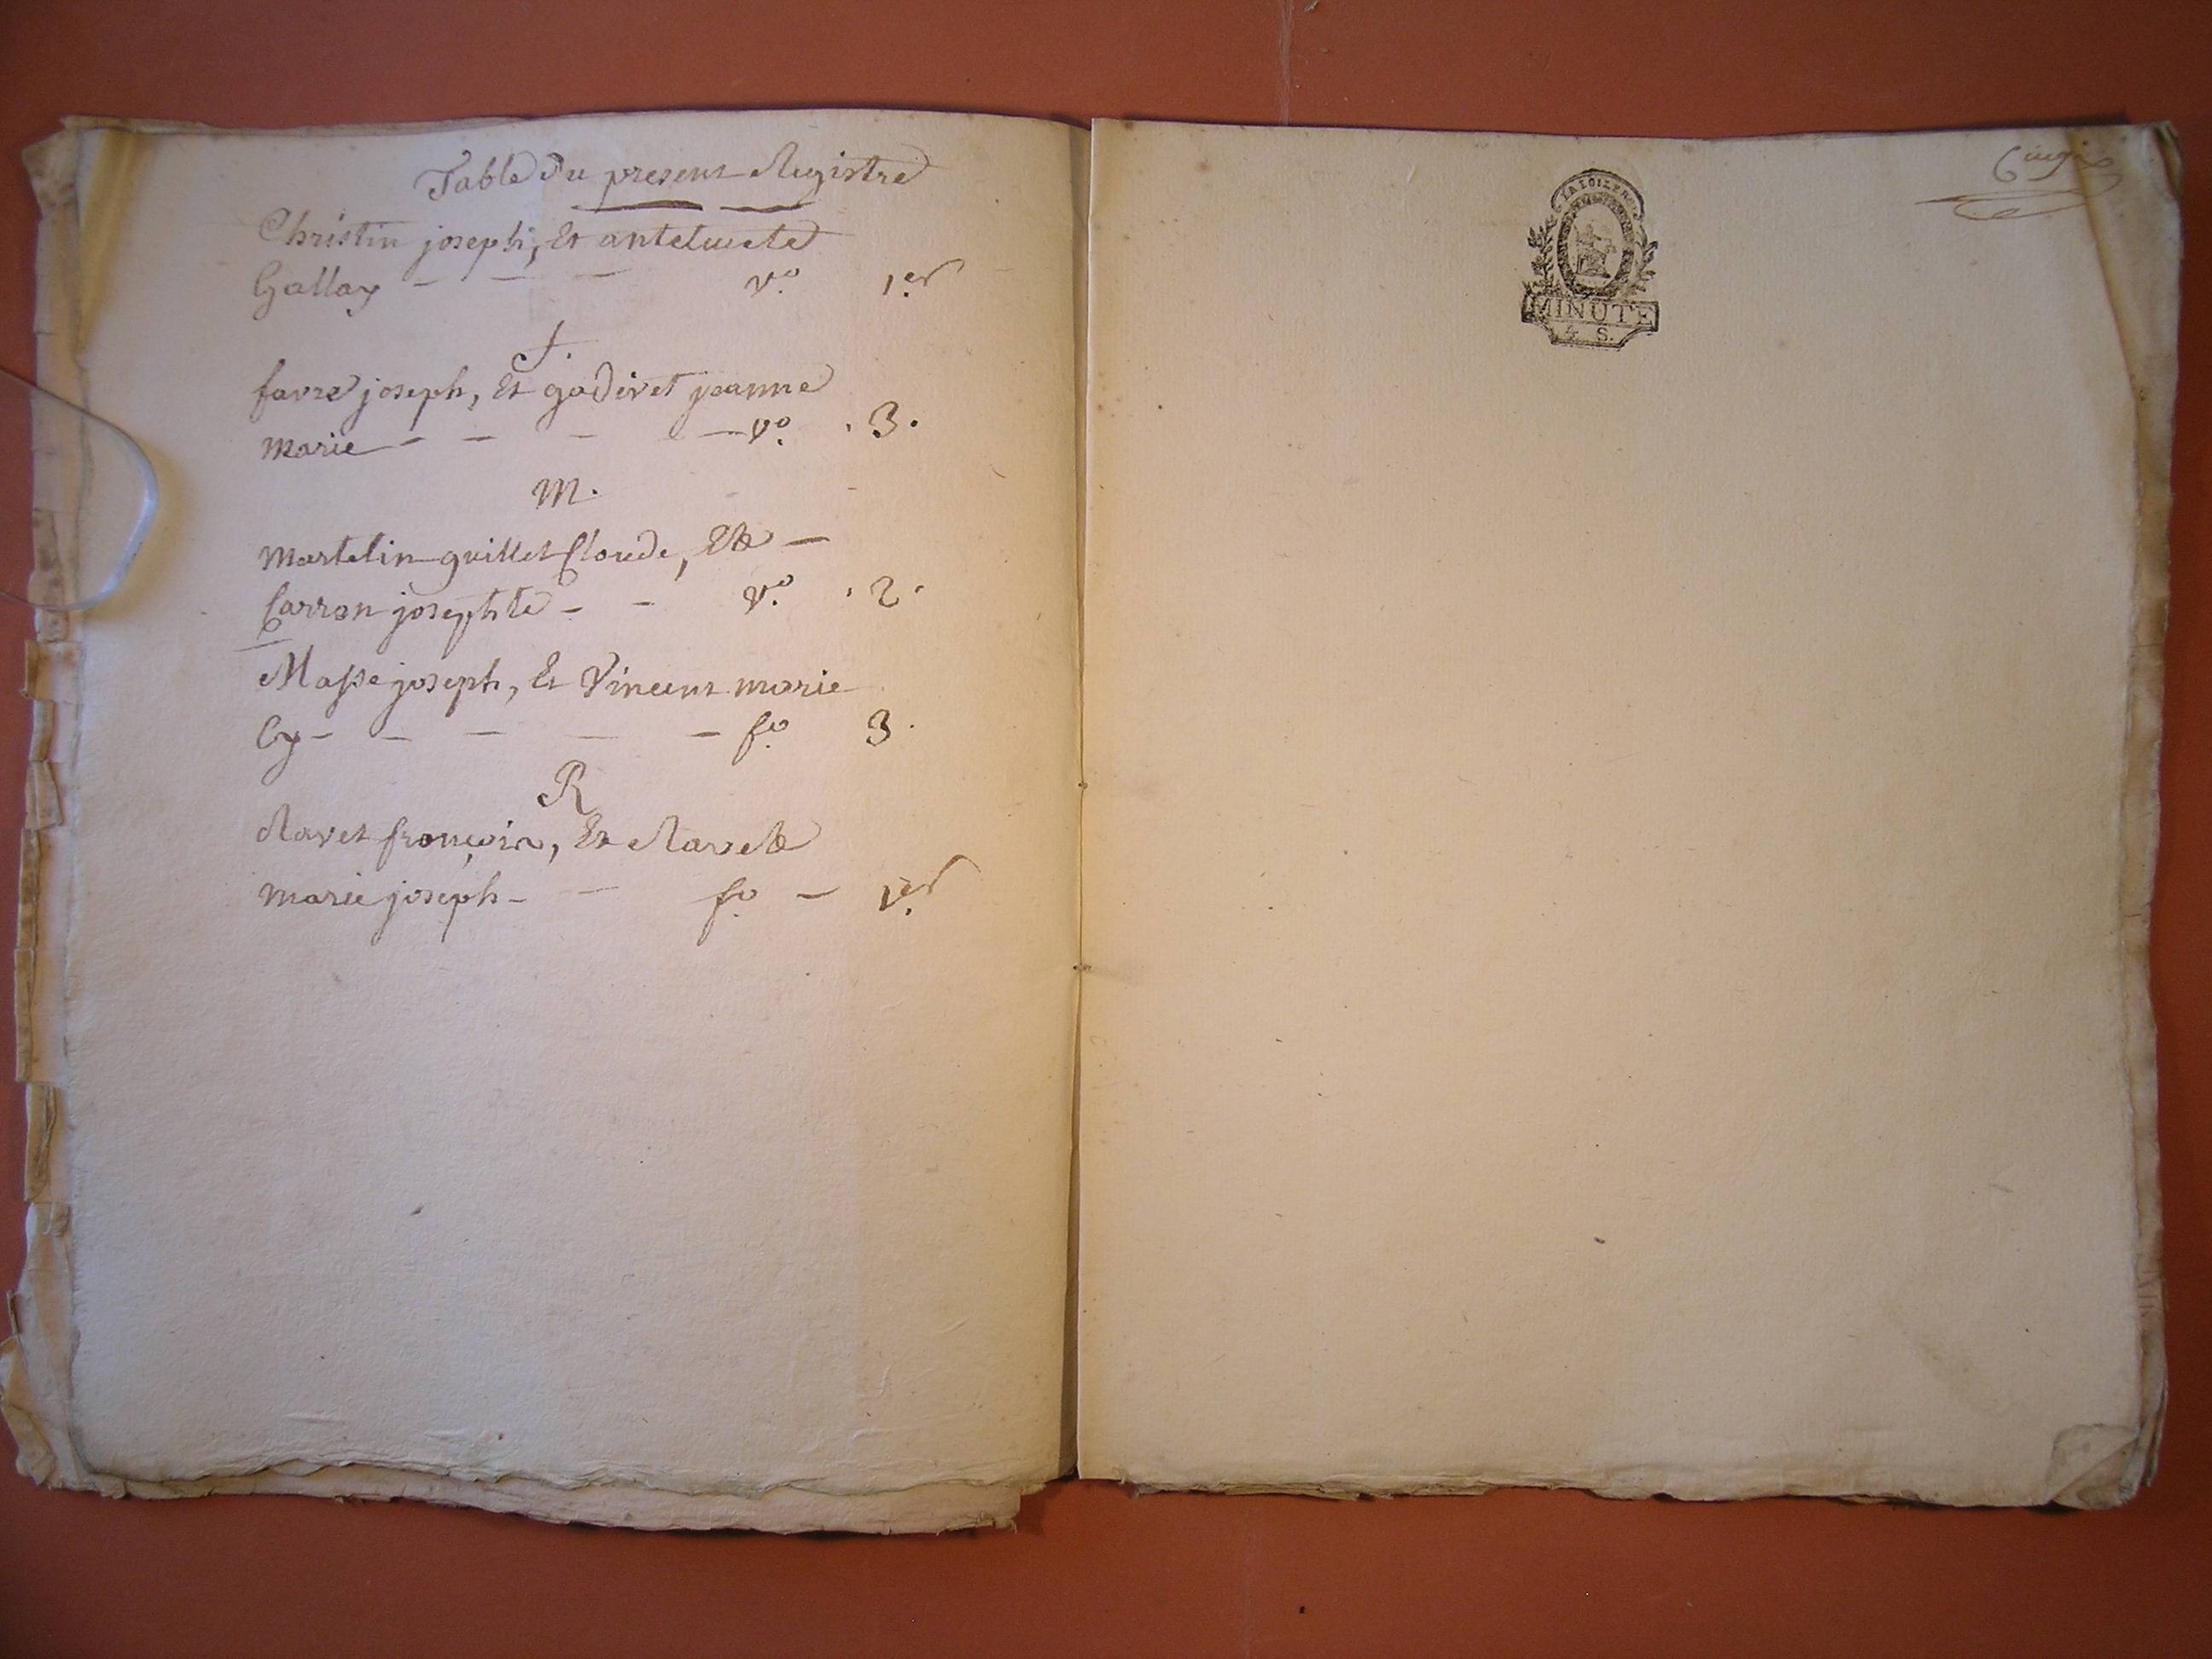 Table du present Registre
Christin joseph, Et antelmete
Gallay - - - v.o 1.er
f.
favre joseph, Et godivet jeanne
marie - - - - v.o . 3.
M.
Martelin guillet Claude, Et
Carron josephte - - v.o . 2.
Masse joseph, Et Vincent marie
Cy - - - - - f.o 3.
R
Ravet françois, Et Ravet
marie joseph - - f.o - 1.er
LA LOI LE ROI
MINUTE
4 S.